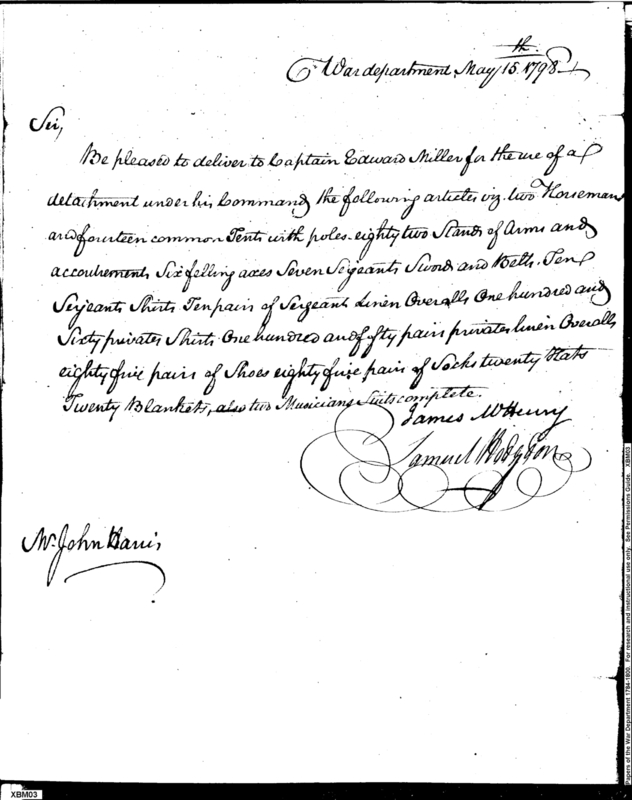 War department May 15th. 1798
Sir,
Be pleased to deliver to Captain Edward Miller for the use of a
detachment under his Command the following articles viz. two Horsemans
and fourteen common Tents with poles - eighty two Stands of Arms and
accoutrements Six felling axes Seven Serjeants Swords and Belts. Ten
Serjeants Shirts. Ten pairs of Sergeant Linen Overalls One hundred and
Sixty privates Shirts. One hundred and fifty pairs privates linen Overalls
eighty five pairs of Shoes eighty five pairs of Socks twenty Hats
Twenty Blankets, also two Musicians Suits complete.
James McHenry
Samuel Hodgdon
Mr. John Harris
XBM03
Papers of the War Department 1784-1800. For research and instructional use only. See Permissions Guide. XBM03